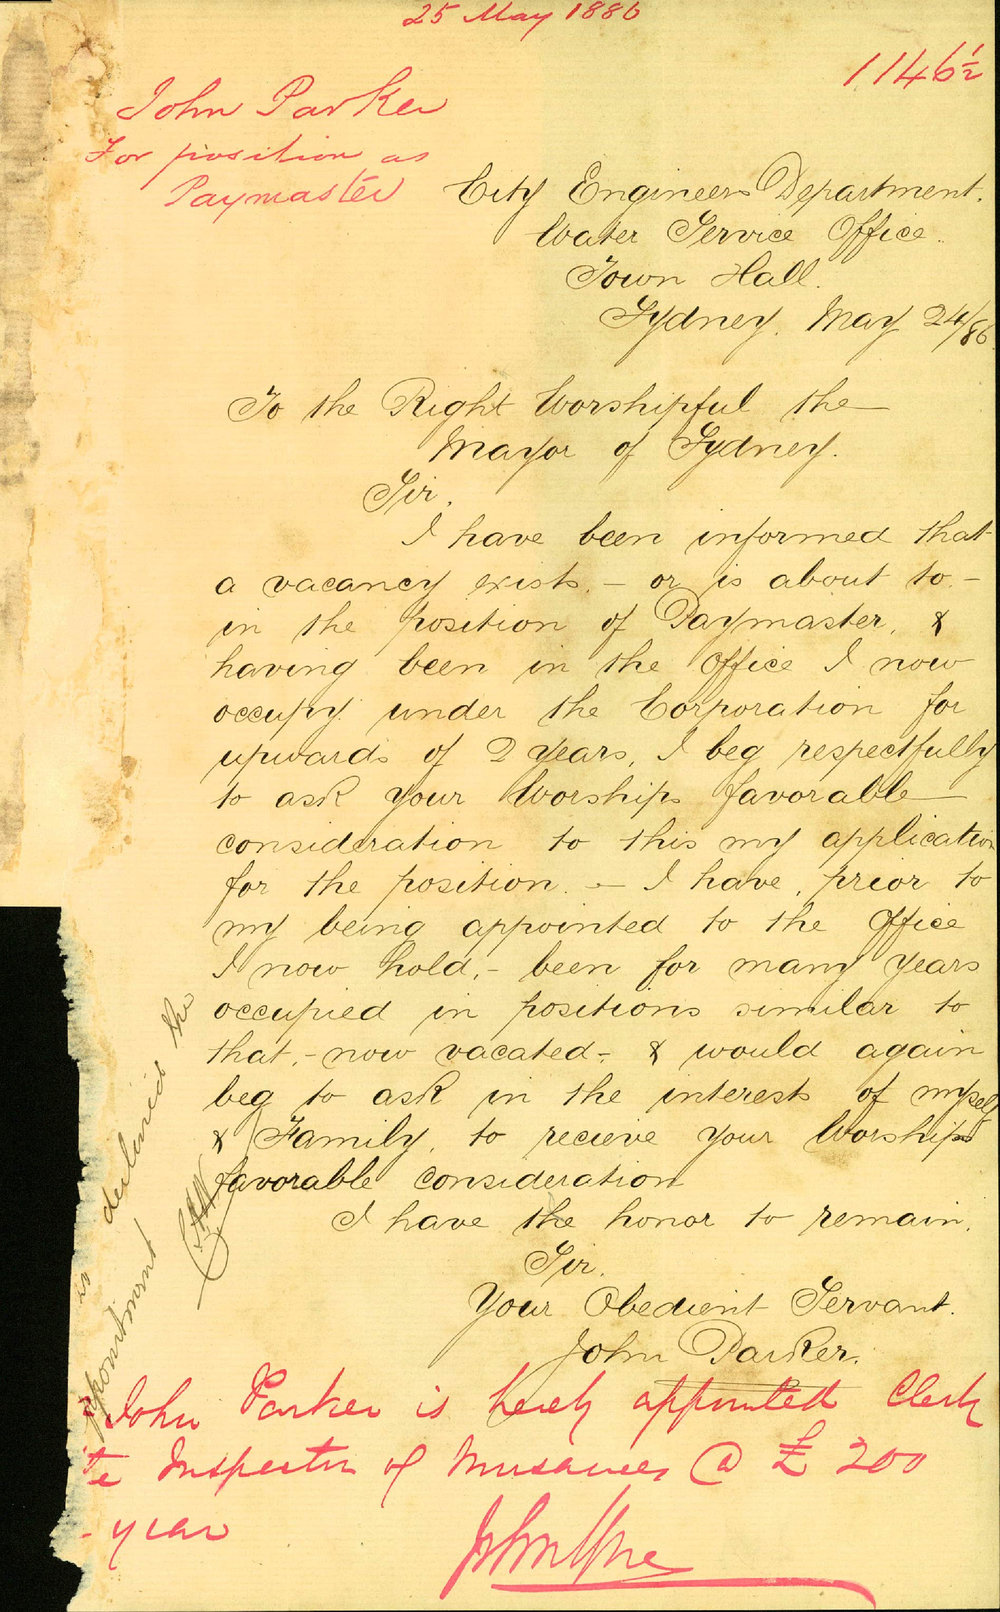 25 May 1886
1146½
John Parker
For position as
Paymaster
City Engineers Department.
Water Service Office.
Town Hall.
Sydney. May 24/86.
To the Right Worshipful the
Mayor of Sydney.
Sir,
I have been informed that
a vacancy exists, - or is about to -
in the position of Paymaster, &
having been in the Office I now
occupy under the Corporation for
upwards of 2 Years, I beg respectfully
to ask your Worships favorable
consideration to this my application
for the position. - I have, prior to
my being appointed to the Office
I now hold, - been for many years
occupied in positions similar to
that, - now vacated - & would again
beg to ask in the interests of myself
& Family, to recieve your Worships
favorable consideration
I have the honor to remain,
Sir.
Your Obedient Servant.
John Parker.
declined the
appointment
John Parker is hereby appointed Clerk
Inspector of Nuisances @ £200
year